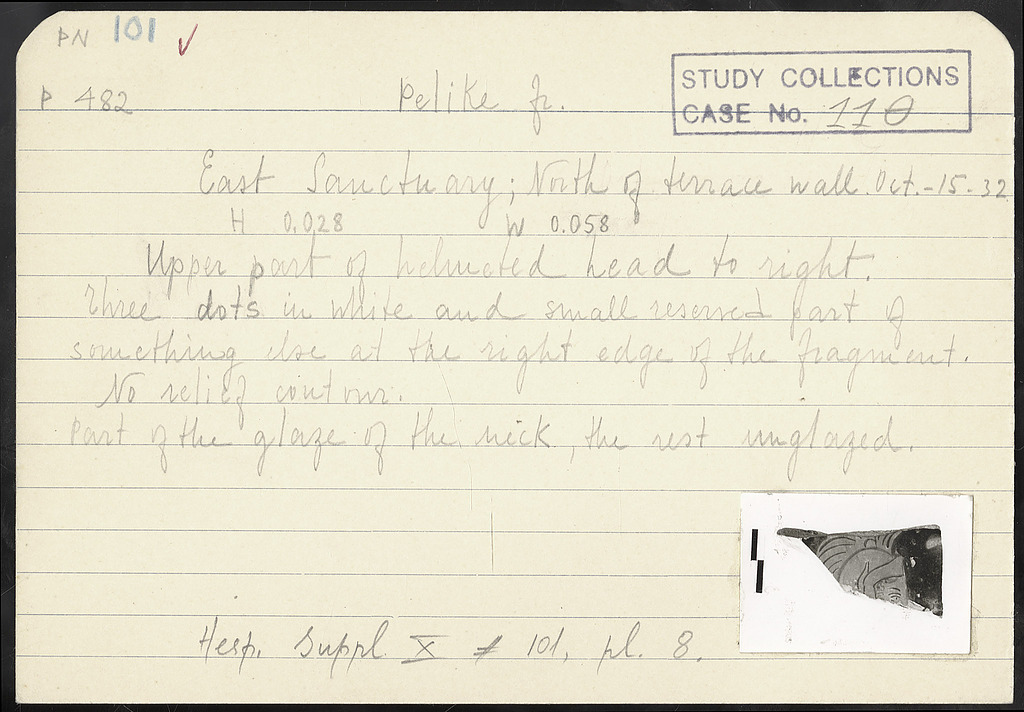 PN 101 ✓
P 482 Pelike fr.
STUDY COLLECTIONS
CASE No. 110
East Sanctuary; North of terrace wall. Oct.-15-32
H 0.028 W 0.058
Upper part of helmeted head to right.
Three dots in white and small reserved part of
something else at the right edge of the fragment.
No relief contour.
Part of the glaze of the neck, the rest unglazed.
Hesp. Suppl. X # 101, pl. 8.